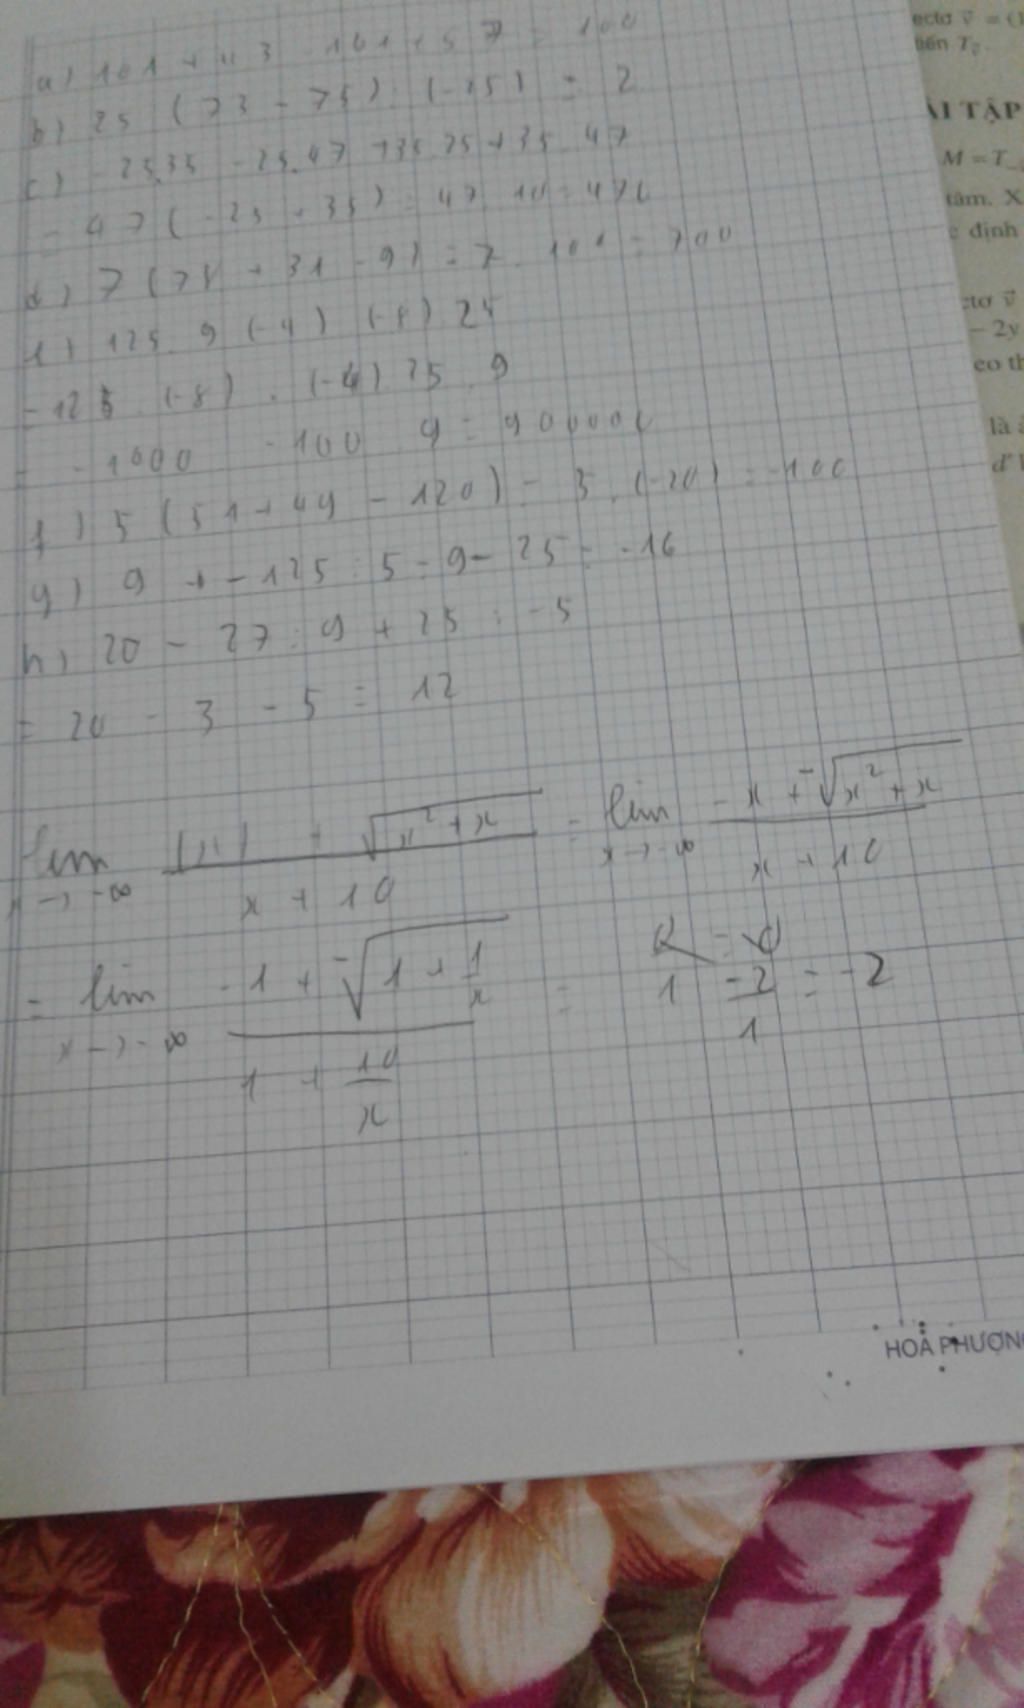 a) 101 + 43 - 101 + 57 = 100
b) 25 (73 - 75) : (-25) = 2
c) - 25.35 - 25.47 + 35.25 + 35.47
= 47 (-25 + 35) = 47.10 = 470
d) 7 (78 + 31 - 9) = 7.100 = 700
125.9 (-4) (-8) 25
= 125.(-8).(-4) 25.9
= -1000 . -100 . 9 = 900000
f) 5 (51 + 49 - 120) = 5.(-20) = -100
g) 9 + -125 : 5 = 9 - 25 = -16
h) 20 - 27 : 9 + 25 : -5
= 20 - 3 - 5 = 12
lim x→-∞ (|x| + √(x² + x)) / (x + 10) = lim x→-∞ (-x + -√(x² + x)) / (x + 10)
= lim x→-∞ (-1 + -√(1 + 1/x)) / (1 + 10/x) = -2/1 = -2
HOA PHƯỢN
ectơ v⃗ = (1
tiến T
ÀI TẬP
M = T
tâm. X
c định
ctơ v⃗
- 2y
eo th
là ả
d'